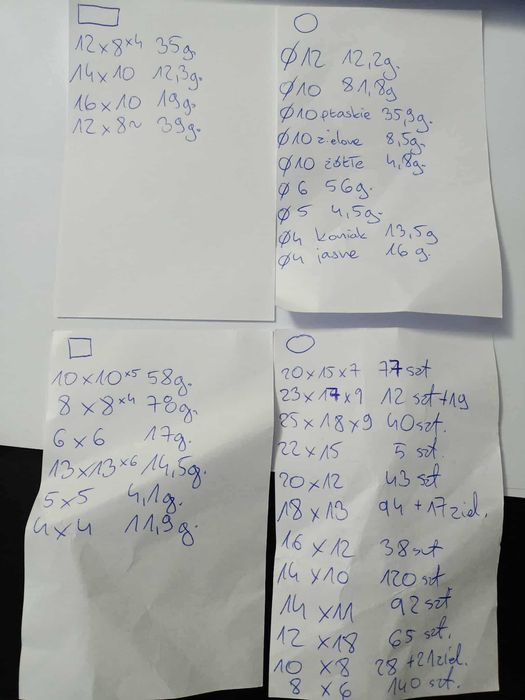 12 x 8 x4 35g.
14 x 10 12,3g.
16 x 10 19g
12 x 8 ~ 39g.
Ø12 12,2g.
Ø10 81,8g
Ø10 płaskie 35,9g.
Ø10 zielone 8,5g.
Ø10 żółte 4,8g.
Ø6 56g.
Ø5 4,5g.
Ø4 koniak 13,5g
Ø4 jasne 16 g.
10 x 10 x5 58g.
8 x 8 x4 78g.
6 x 6 17g.
13 x 13 x6 14,5g.
5 x 5 4,1g.
4 x 4 11,9g.
20 x 15 x 7 77 szt
23 x 17 x 9 12 szt+19
25 x 18 x 9 40 szt.
22 x 15 5 szt.
20 x 12 43 szt
18 x 13 94 + 17 ziel.
16 x 12 38 szt
14 x 10 120 szt.
14 x 11 92 szt
12 x 18 65 szt.
10 x 8 28 + 21 ziel.
8 x 6 140 szt.